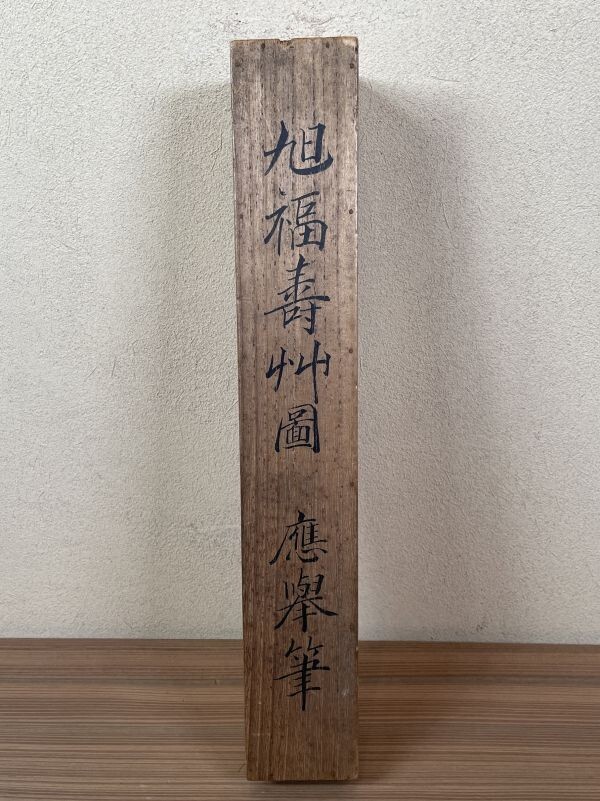 旭福壽艸圖 應舉筆